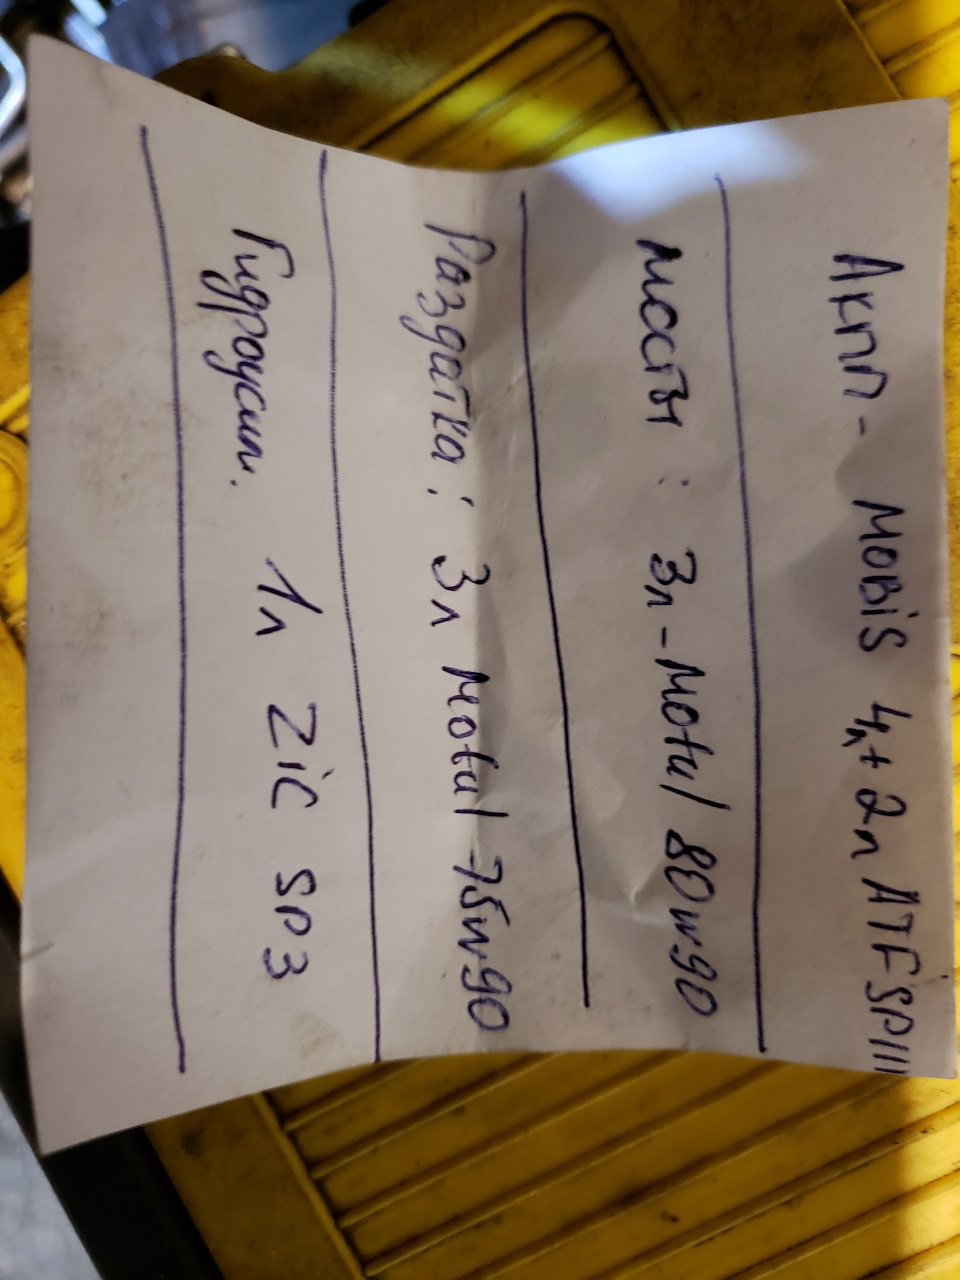 Акпп - MOBiS 4л+2л ATF SPIII
мосты : 3л-Motul 80w90
Раздатка : 3л Motul 75w90
Гидроусил. 1л ZiC SP3